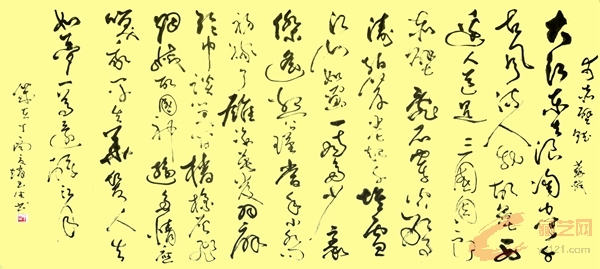 赤壁
苏轼
大江东去浪淘尽千
古风流人物故垒西
边人道是三国周郎
赤壁乱石穿空惊
涛拍岸卷起千堆雪
江山如画一时多少豪
傑遥想公瑾当年小乔
初嫁了雄姿英发羽扇
纶巾谈笑间樯橹灰飞
烟灭故国神游多情应
笑我早生华发人生
如梦一尊还酹江月
岁在丁